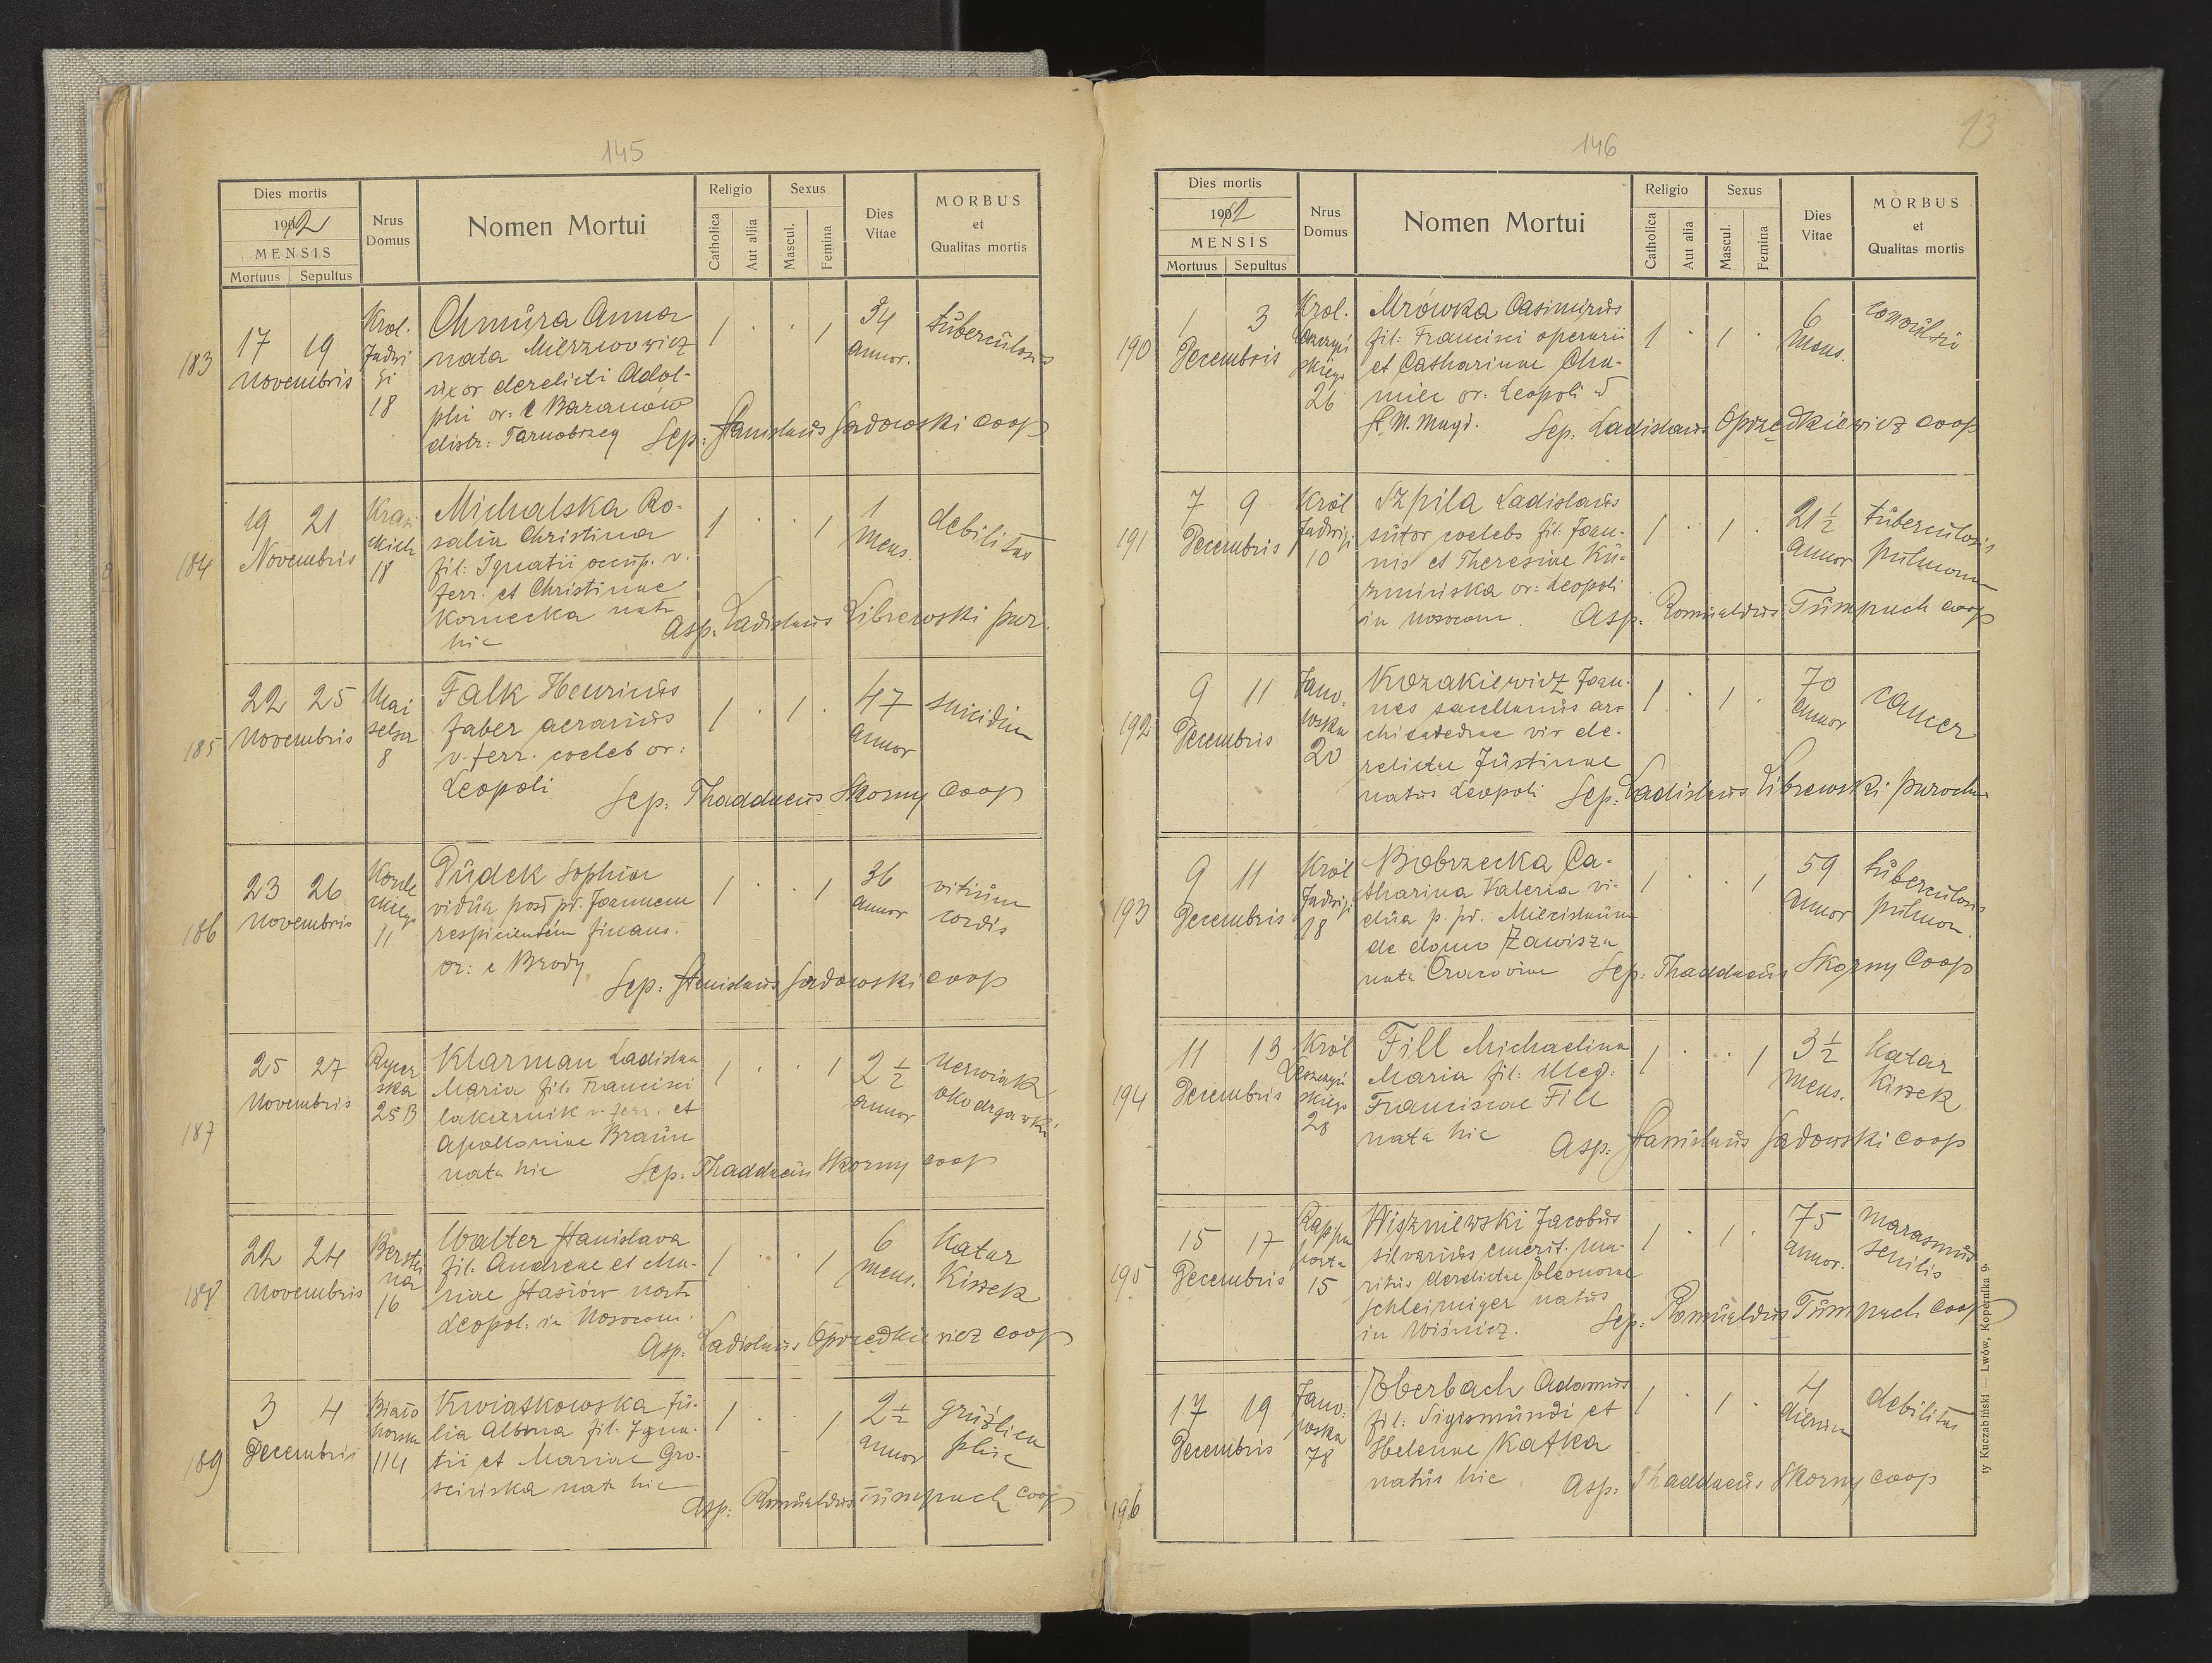 145
Dies mortis
1912
MENSIS
Mortuus Sepultus
Nrus Domus
Nomen Mortui
Religio
Catholica
Aut alia
Sexus
Mascul.
Femina
Dies Vitae
MORBUS
et
Qualitas mortis
183
17 19
Novembris
Krol.
Jadwi
gi
18
Chmura Anna
nata Mierzwowicz
uxor derelicti Adol-
phi or: e Baranow
distr: Tarnobrzeg
1 . . 1
34
annor.
tuberculosis
Sep: Stanislaus Sadowski coop
184
19 21
Novembris
Krasi
ckich
18
Michalska Ro-
salia Christina
fil: Ignatii occup. v.
ferr. et Christinae
Kornecka nata
hic
1 . . 1
1
mens.
debilitas
Asp: Ladislaus Librewski par.
185
22 25
Novembris
Mai
selsa
8
Falk Henricus
faber aerarius
v. ferr. coeleb or:
Leopoli
1 . 1 .
47
annor
suicidium
Sep: Thaddaeus Skorny coop
186
23 26
Novembris
Korde
ckiego
11
Dudek Sophia
vidua post pd. Joannem
respicientem finans.
or: e Brody
1 . . 1
36
annor
vitium
cordis
Sep: Stanislaus Sadowski coop
187
25 27
Novembris
Rycer
ska
25B
Klarman Ladislaa
Maria fil: Francisci
lakiernik v. ferr. et
Apolloniae Braun
nata hic
1 . . 1
2 1/2
annor
Sep: Thaddaeus Skorny coop
188
22 24
Novembris
Berstei
na
16
Walter Stanislava
fil. Andreae et Ma-
riae Stasiów nata
Leopol. in Nosocom.
1 . . 1
6
mens.
Katar
Kiszek
Asp: Ladislaus Oprzędkiewicz coop
189
3 4
Decembris
Biało
horska
114
Kwiatkowska Ju-
lia Albina fil. Igna-
tii et Mariae Gro-
scinska nata hic
1 . . 1
2 1/2
annor
gruźlica
płuc
Asp: Romualdus Tumpach coop
146
13
Dies mortis
1912
MENSIS
Mortuus Sepultus
Nrus Domus
Nomen Mortui
Religio
Catholica
Aut alia
Sexus
Mascul.
Femina
Dies Vitae
MORBUS
et
Qualitas mortis
190
1 3
Decembris
Krol.
Leszczyń
skiego
26
Mrówka Casimirus
fil: Francisci operarii
et Catharinae Chu-
miec or: Leopoli
1 . 1 .
6
mens.
convulsio
Sep: Ladislaus Oprzędkiewicz coop
191
7 9
Decembris
Król
Jadwigi
10
Szpila Ladislaus
sutor coelebs fil: Joan-
nis et Theresiae Ku-
zminska or: Leopoli
in Nosocom.
1 . 1 .
21 1/2
annor
tuberculosis
pulmonum
Asp: Romualdus Tumpach coop
192
9 11
Decembris
Jano-
wska
20
Kozakiewicz Joan-
nes sacellanus ar-
chicatedrae vir de-
relictae Justinae
natus Leopoli
1 . 1 .
70
annor
cancer
Sep: Ladislaus Librewski parochus
193
9 11
Decembris
Król
Jadwigi
18
Bobrzecka Ca-
tharina Valeria vi-
dua p. pd. Miecislaum
de domo Zawisza
nata Cracoviae
1 . . 1
59
annor
tuberculosis
pulmon.
Sep: Thaddaeus Skorny coop
194
11 13
Decembris
Król
Leszczyń
skiego
28
Fill Michaelina
Maria fil: illeg:
Franciscae Fill
nata hic
1 . . 1
3 1/2
mens.
Katar
Kiszek
Asp: Stanislaus Sadowski coop
195
15 17
Decembris
Rappa
porta
15
Wiszniewski Jacobus
silvarius emerit. ma-
ritus derelictae Eleonorae
Schleiniger natus
in Wiśnicz.
1 . 1 .
75
annor.
marasmus
senilis
Sep: Romualdus Tumpach coop
196
17 19
Decembris
Jano-
wska
78
Oberbach Adamus
fil: Sigismundi et
Helenae Kafka
natus hic
1 . 1 .
4
dierum
debilitas
Asp: Thaddaeus Skorny coop
ty Kuczabiński — Lwów, Kopernika 9.